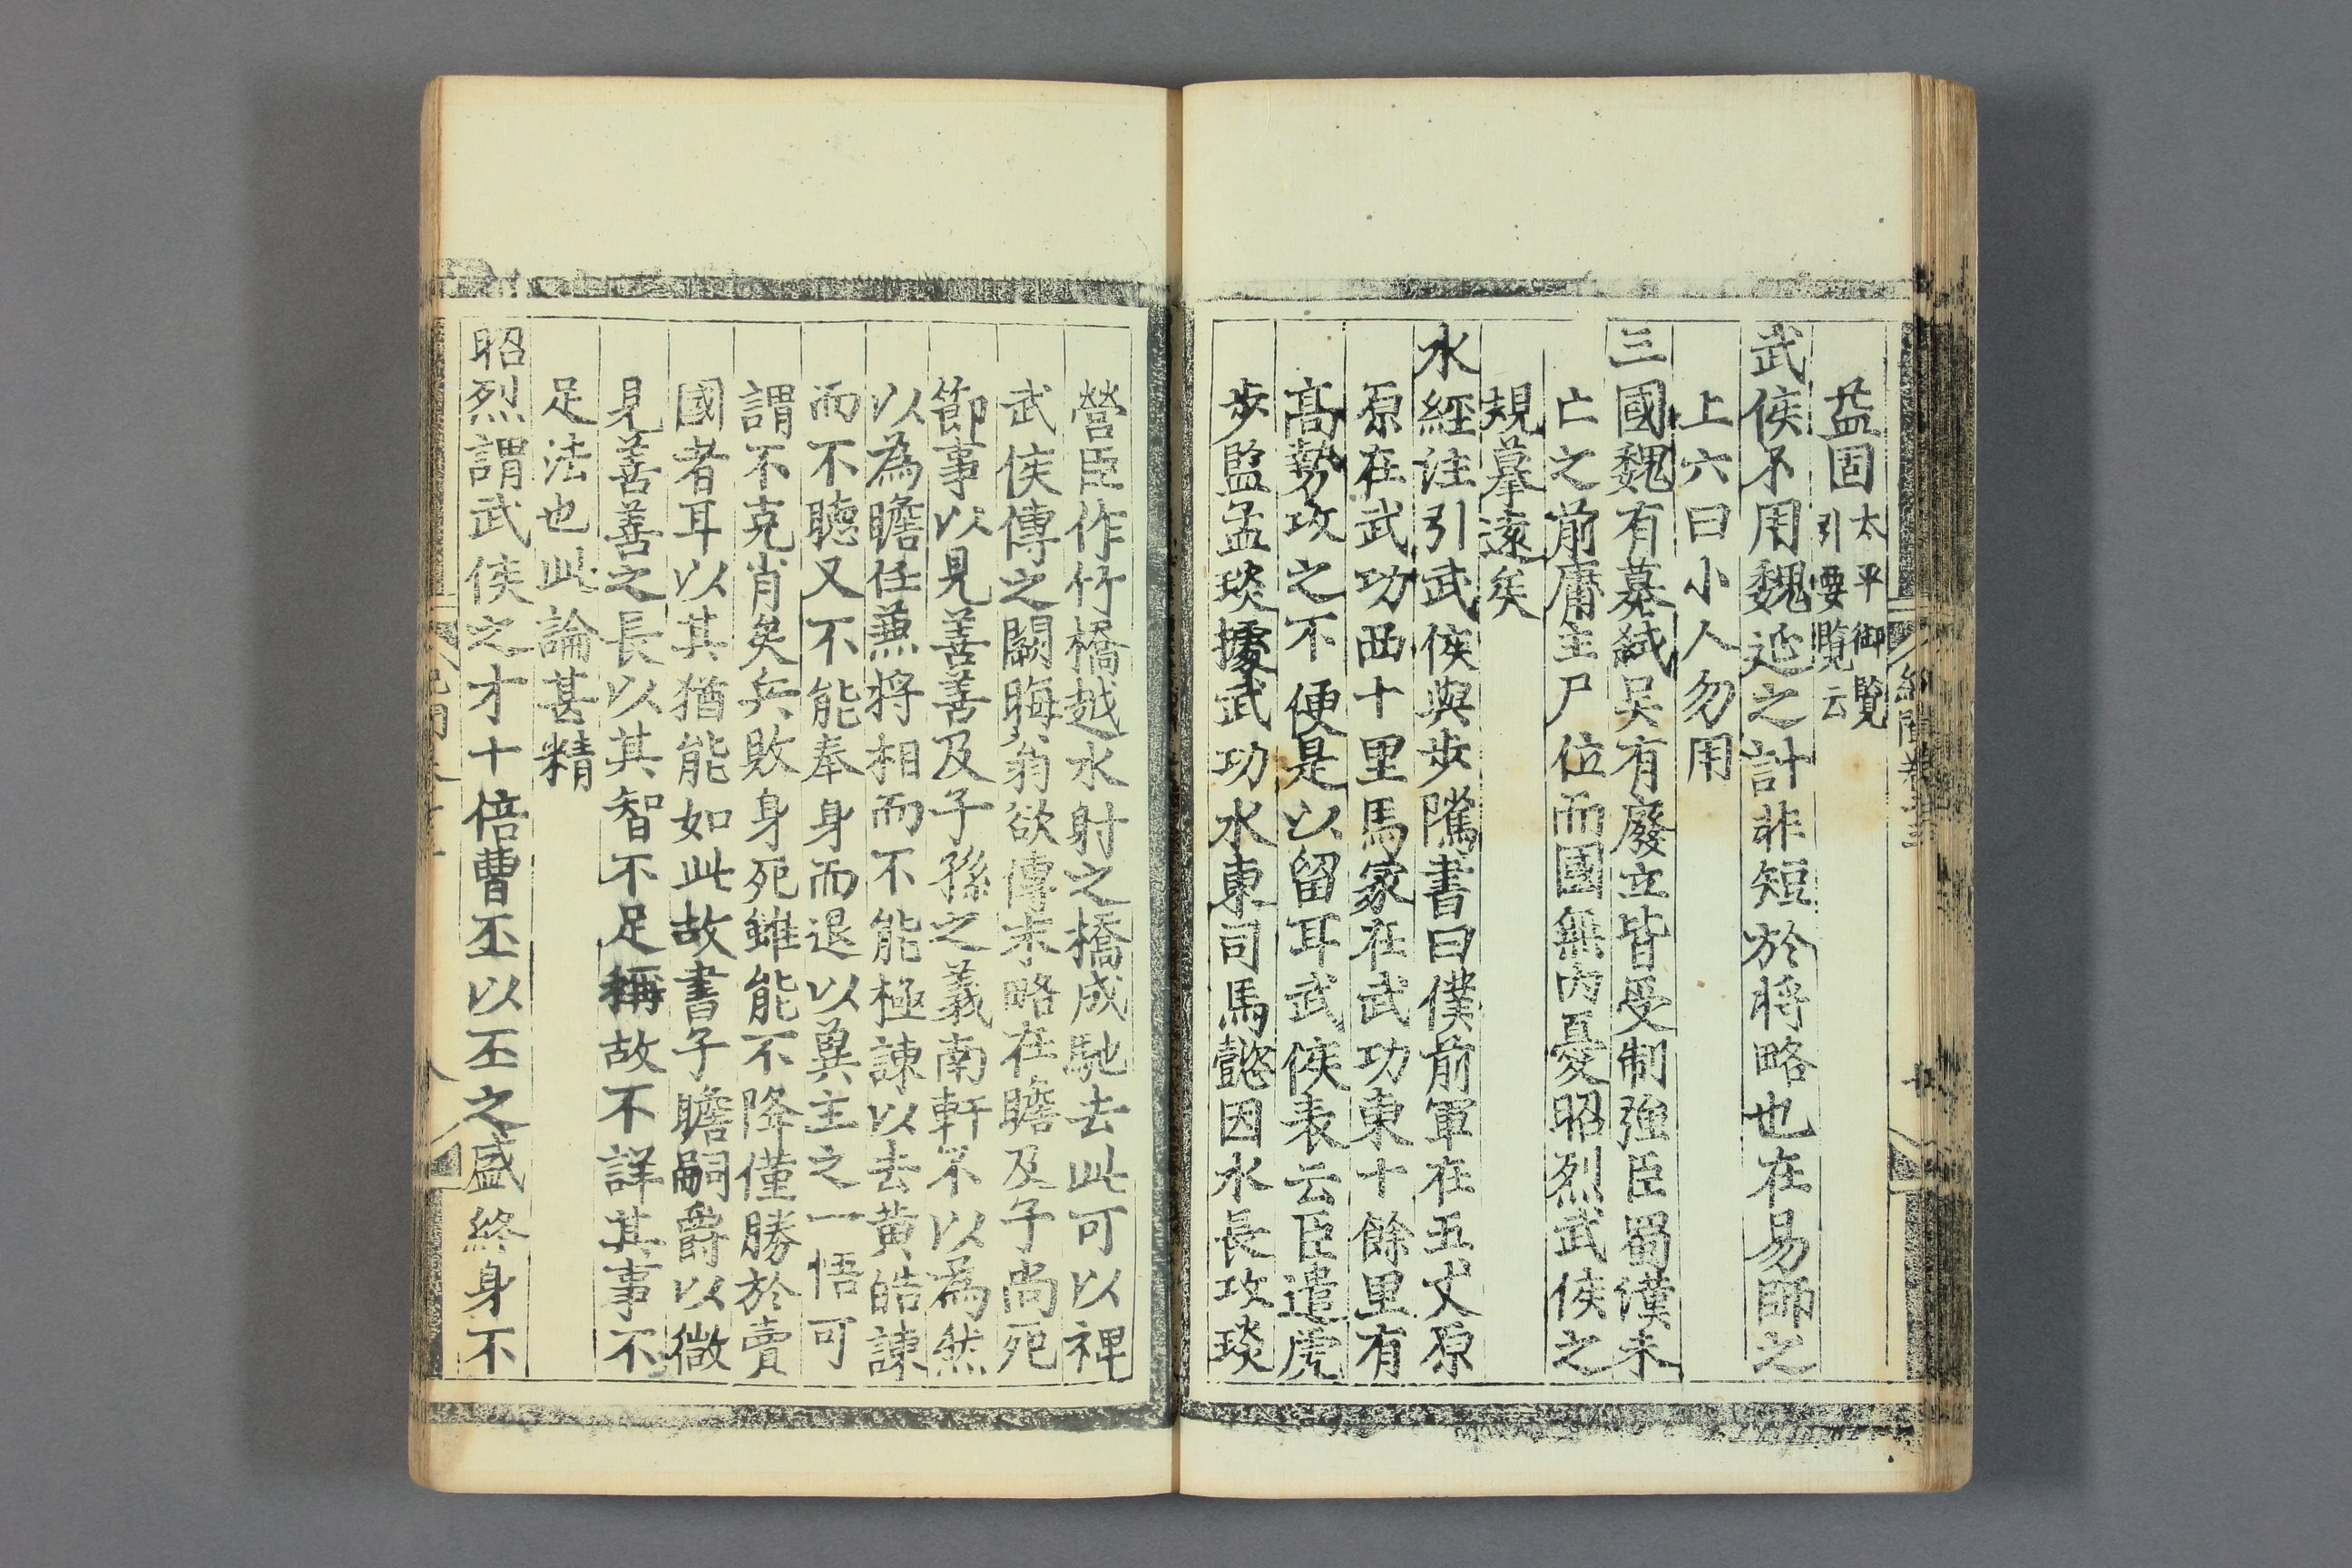 益固太平御覧引要覧云
武侯不用魏延之計非短於將略也在易師之
上六曰小人勿用
三國魏有簒弑吴有廢立皆受制強臣蜀漢未
亡之前庸主尸位而國無内憂昭烈武侯之
規摹遠矣
水經注引武侯與步隲書曰僕前軍在五丈原
原在武功西十里馬冢在武功東十餘里有
髙勢攻之不便是以留耳武侯表云臣遣虎
步監孟琰據武功水東司馬懿因水長攻琰
營臣作竹橋越水射之橋成馳去此可以裨
武侯傳之闕晦翁欲傳末略在瞻及子尚死
節事以見善善及子孫之義南軒不以為然
以為瞻任兼將相而不能極諫以去黄皓諫
而不聽又不能奉身而退以兾主之一悟可
謂不克肖矣兵敗身死雖能不降僅勝於賣
國者耳以其猶能如此故書子瞻嗣爵以微
見善善之長以其智不足稱故不詳其事不
足法也此論甚精
昭烈謂武侯之才十倍曹丕以丕之盛終身不